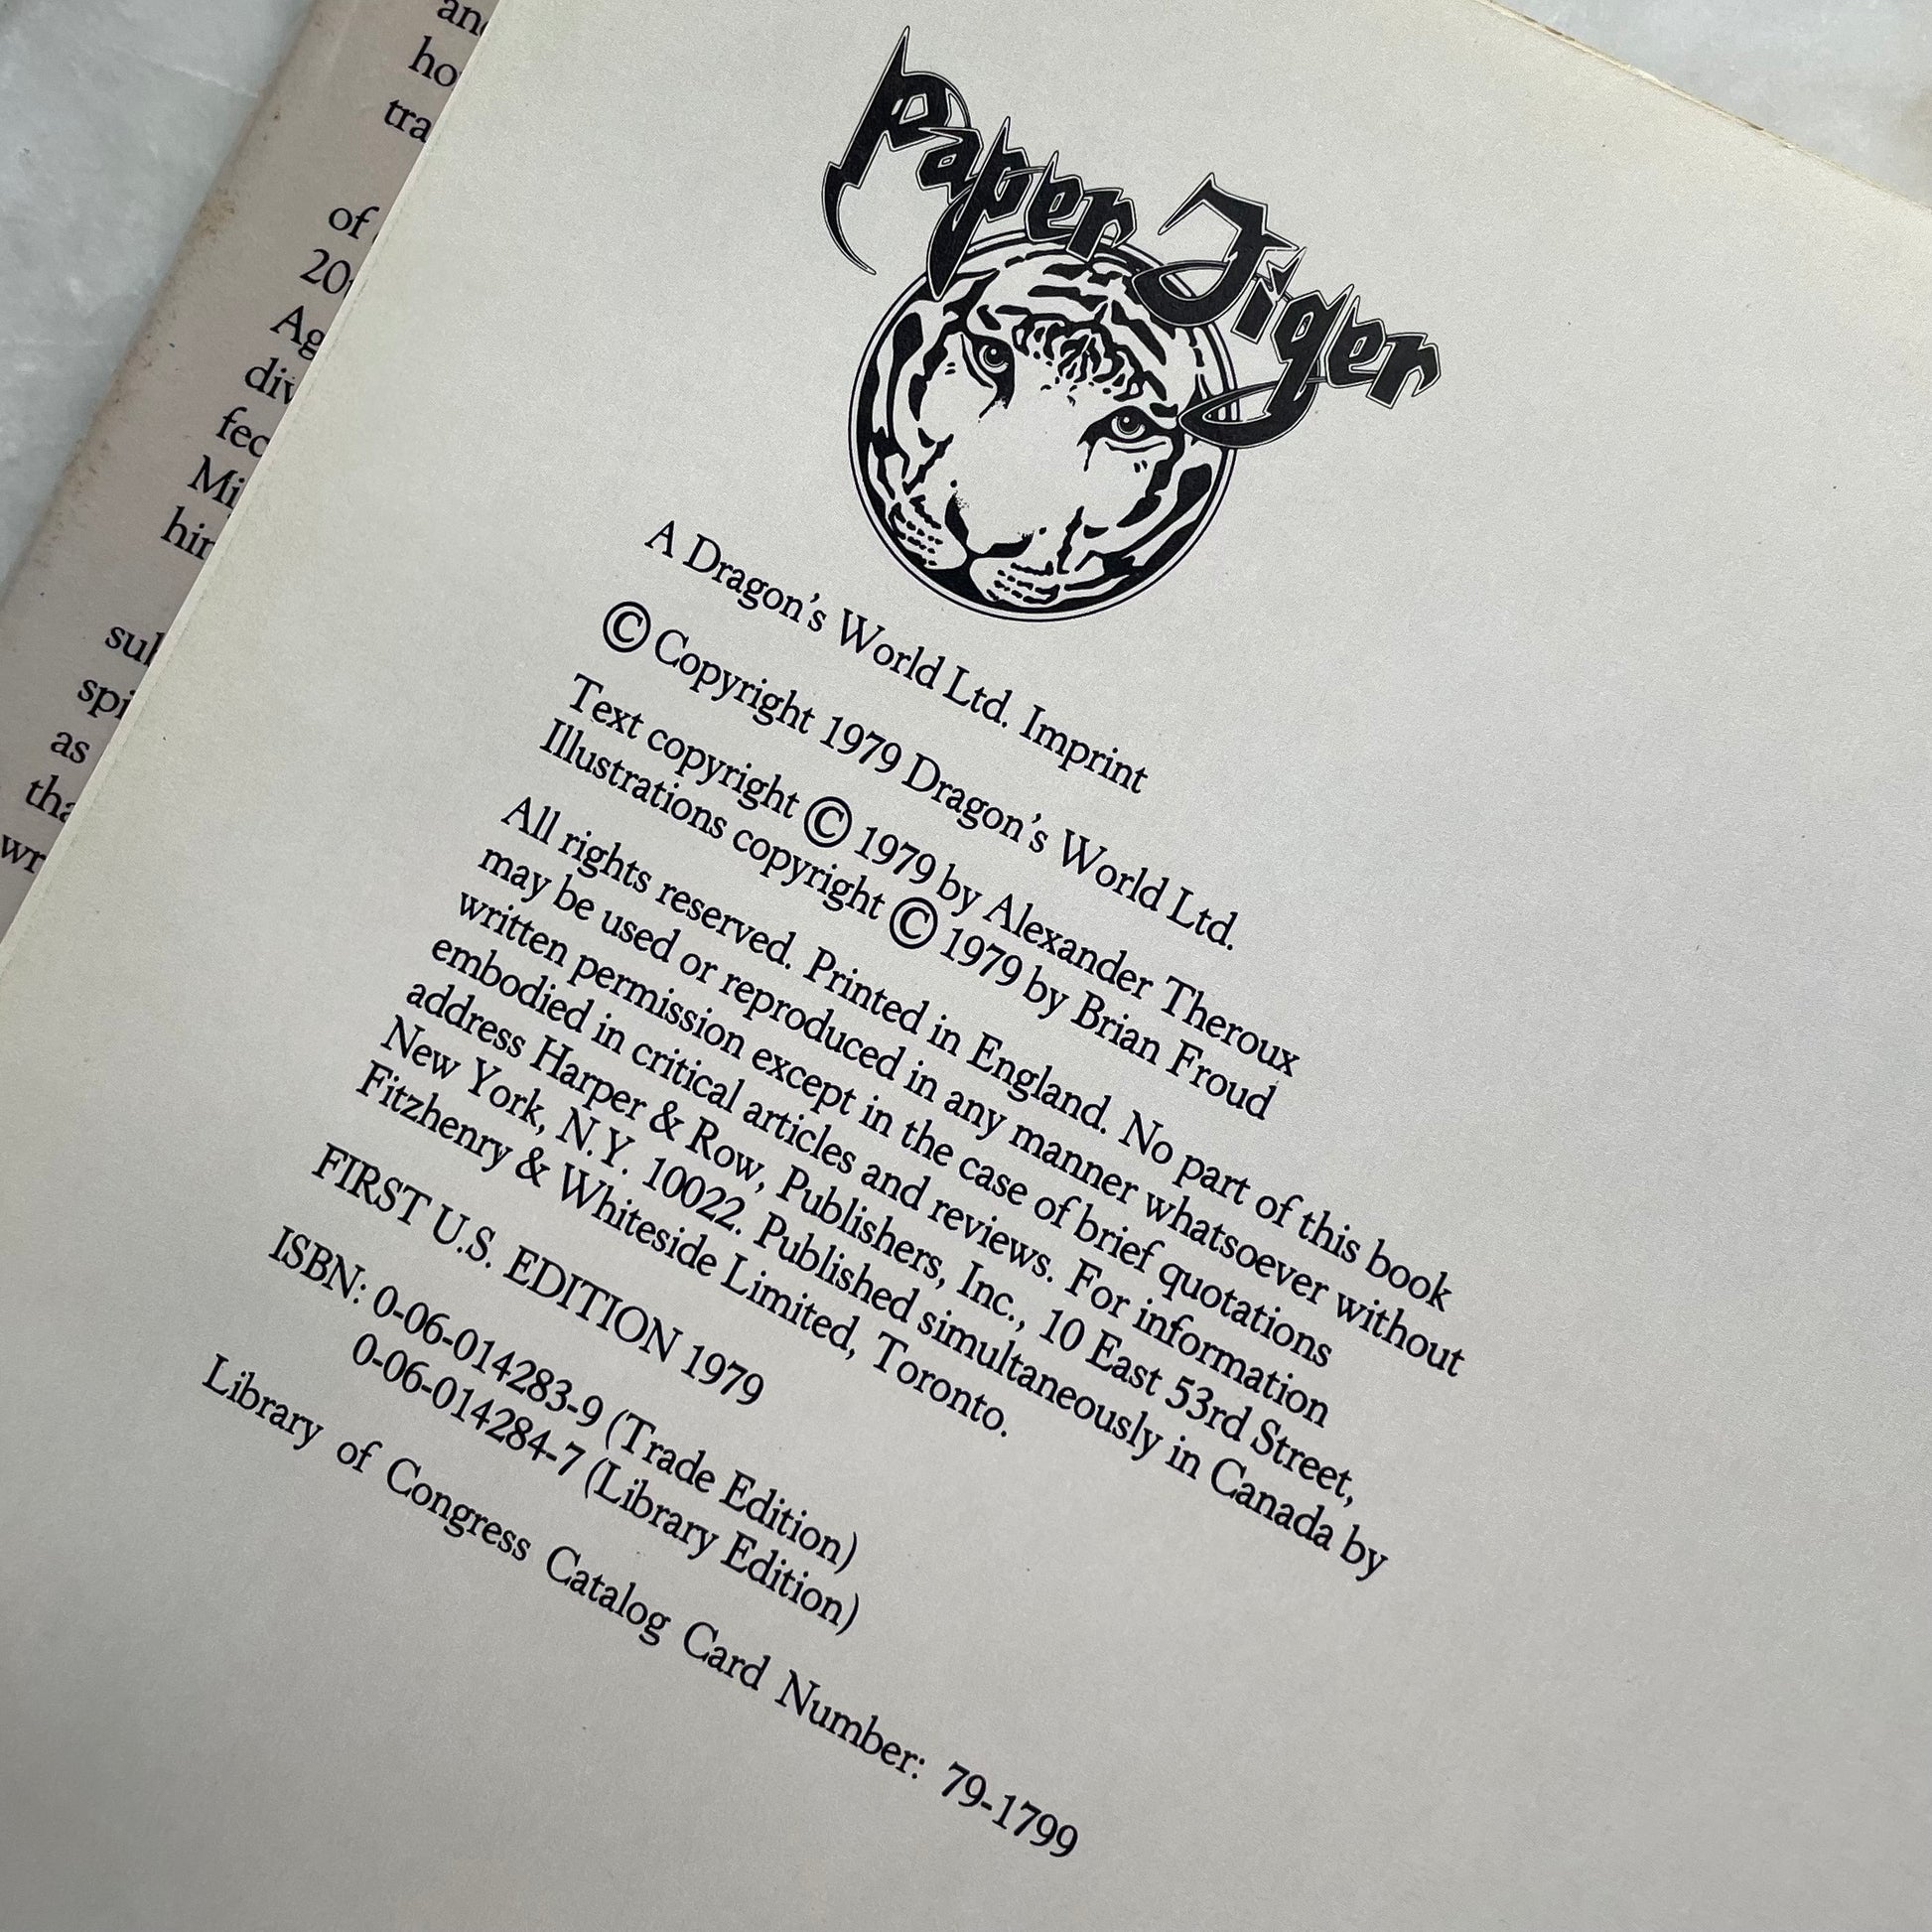 of
as
Paper Tiger
A Dragon's World Ltd. Imprint
© Copyright 1979 Dragon's World Ltd.
Text copyright © 1979 by Alexander Theroux
Illustrations copyright © 1979 by Brian Froud
All rights reserved. Printed in England. No part of this book
may be used or reproduced in any manner whatsoever without
written permission except in the case of brief quotations
embodied in critical articles and reviews. For information
address Harper & Row, Publishers, Inc., 10 East 53rd Street,
New York, N.Y. 10022. Published simultaneously in Canada by
Fitzhenry & Whiteside Limited, Toronto.
FIRST U.S. EDITION 1979
ISBN: 0-06-014283-9 (Trade Edition)
0-06-014284-7 (Library Edition)
Library of Congress Catalog Card Number: 79-1799